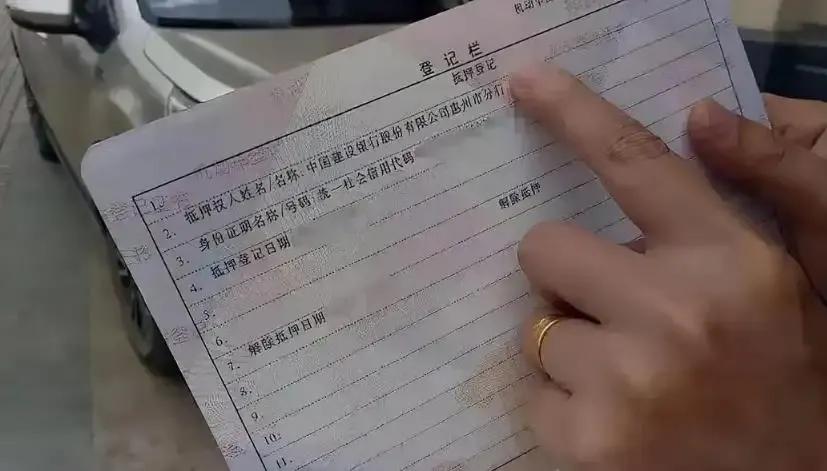 机动车
登记栏
抵押登记
1.
2. 抵押权人姓名/名称:中国建设银行股份有限公司惠州市分行
3. 身份证明名称/号码:统一社会信用代码
4. 抵押登记日期
5.
解除抵押
6.
7. 解除抵押日期
8.
9.
10.
11.